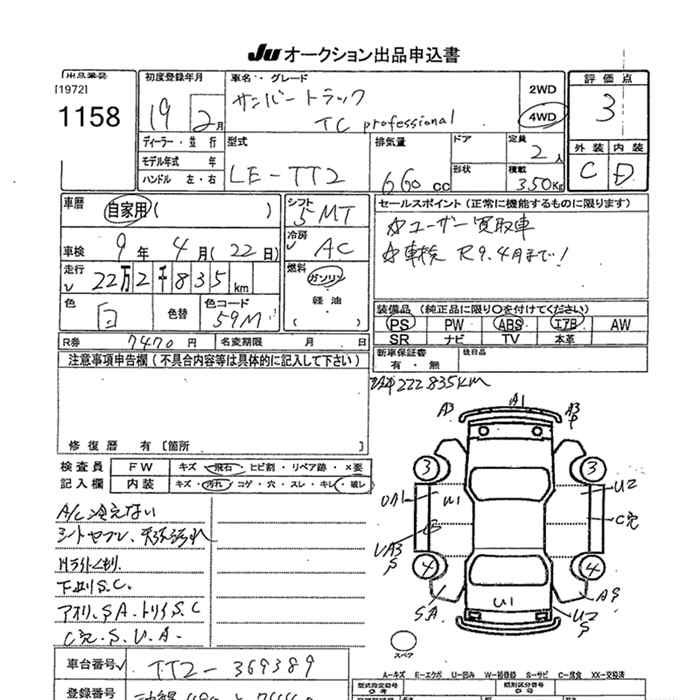 Ju オークション出品申込書
出品番号
[1972]
1158
初度登録年月
19
2月
車名・グレード
サンバートラック
TC professional
2WD
4WD
評価点
3
外装 内装
C D
ディーラー・並行
モデル年式 年
ハンドル 左・右
型式
LE-TT2
排気量
660 cc
ドア
形状
定員
2人
積載
350Kg
車歴
自家用( )
車検 9年 4月(22日)
走行 22万2千835km
色 白
色替
色コード
59M
シフト
5MT
冷房
AC
燃料
ガソリン
軽油
( )
セールスポイント(正常に機能するものに限ります)
☆ユーザー買取車
☆車検 R9.4月まで!
装備品(純正品に限り○を付けてください)
PS PW ABS エアB AW
SR ナビ TV 本革
新車保証書
有・無
後日品
R券 7470円
名変期限 月 日
222835KM
注意事項申告欄(不具合内容等は具体的に記入して下さい)
修復歴 有〔箇所 〕
検査員
記入欄
FW キズ・飛石・ヒビ割・リペア跡・×要
内装 キズ・汚れ・コゲ・穴・スレ・キレ・破レ
A/C冷えない
Hライトくもり
下廻りS.C.
アオリ、S.A.トリイS.C
C穴.S.U.A.
A3 A1 A3
P
3 3
U2
C穴
U1
4 4
SA
U1
AS
U2
S
スペア
A-キズ E-エクボ U-凹み S-サビ C-腐食 XX-交換済
車台番号 TT2-369389
登録番号